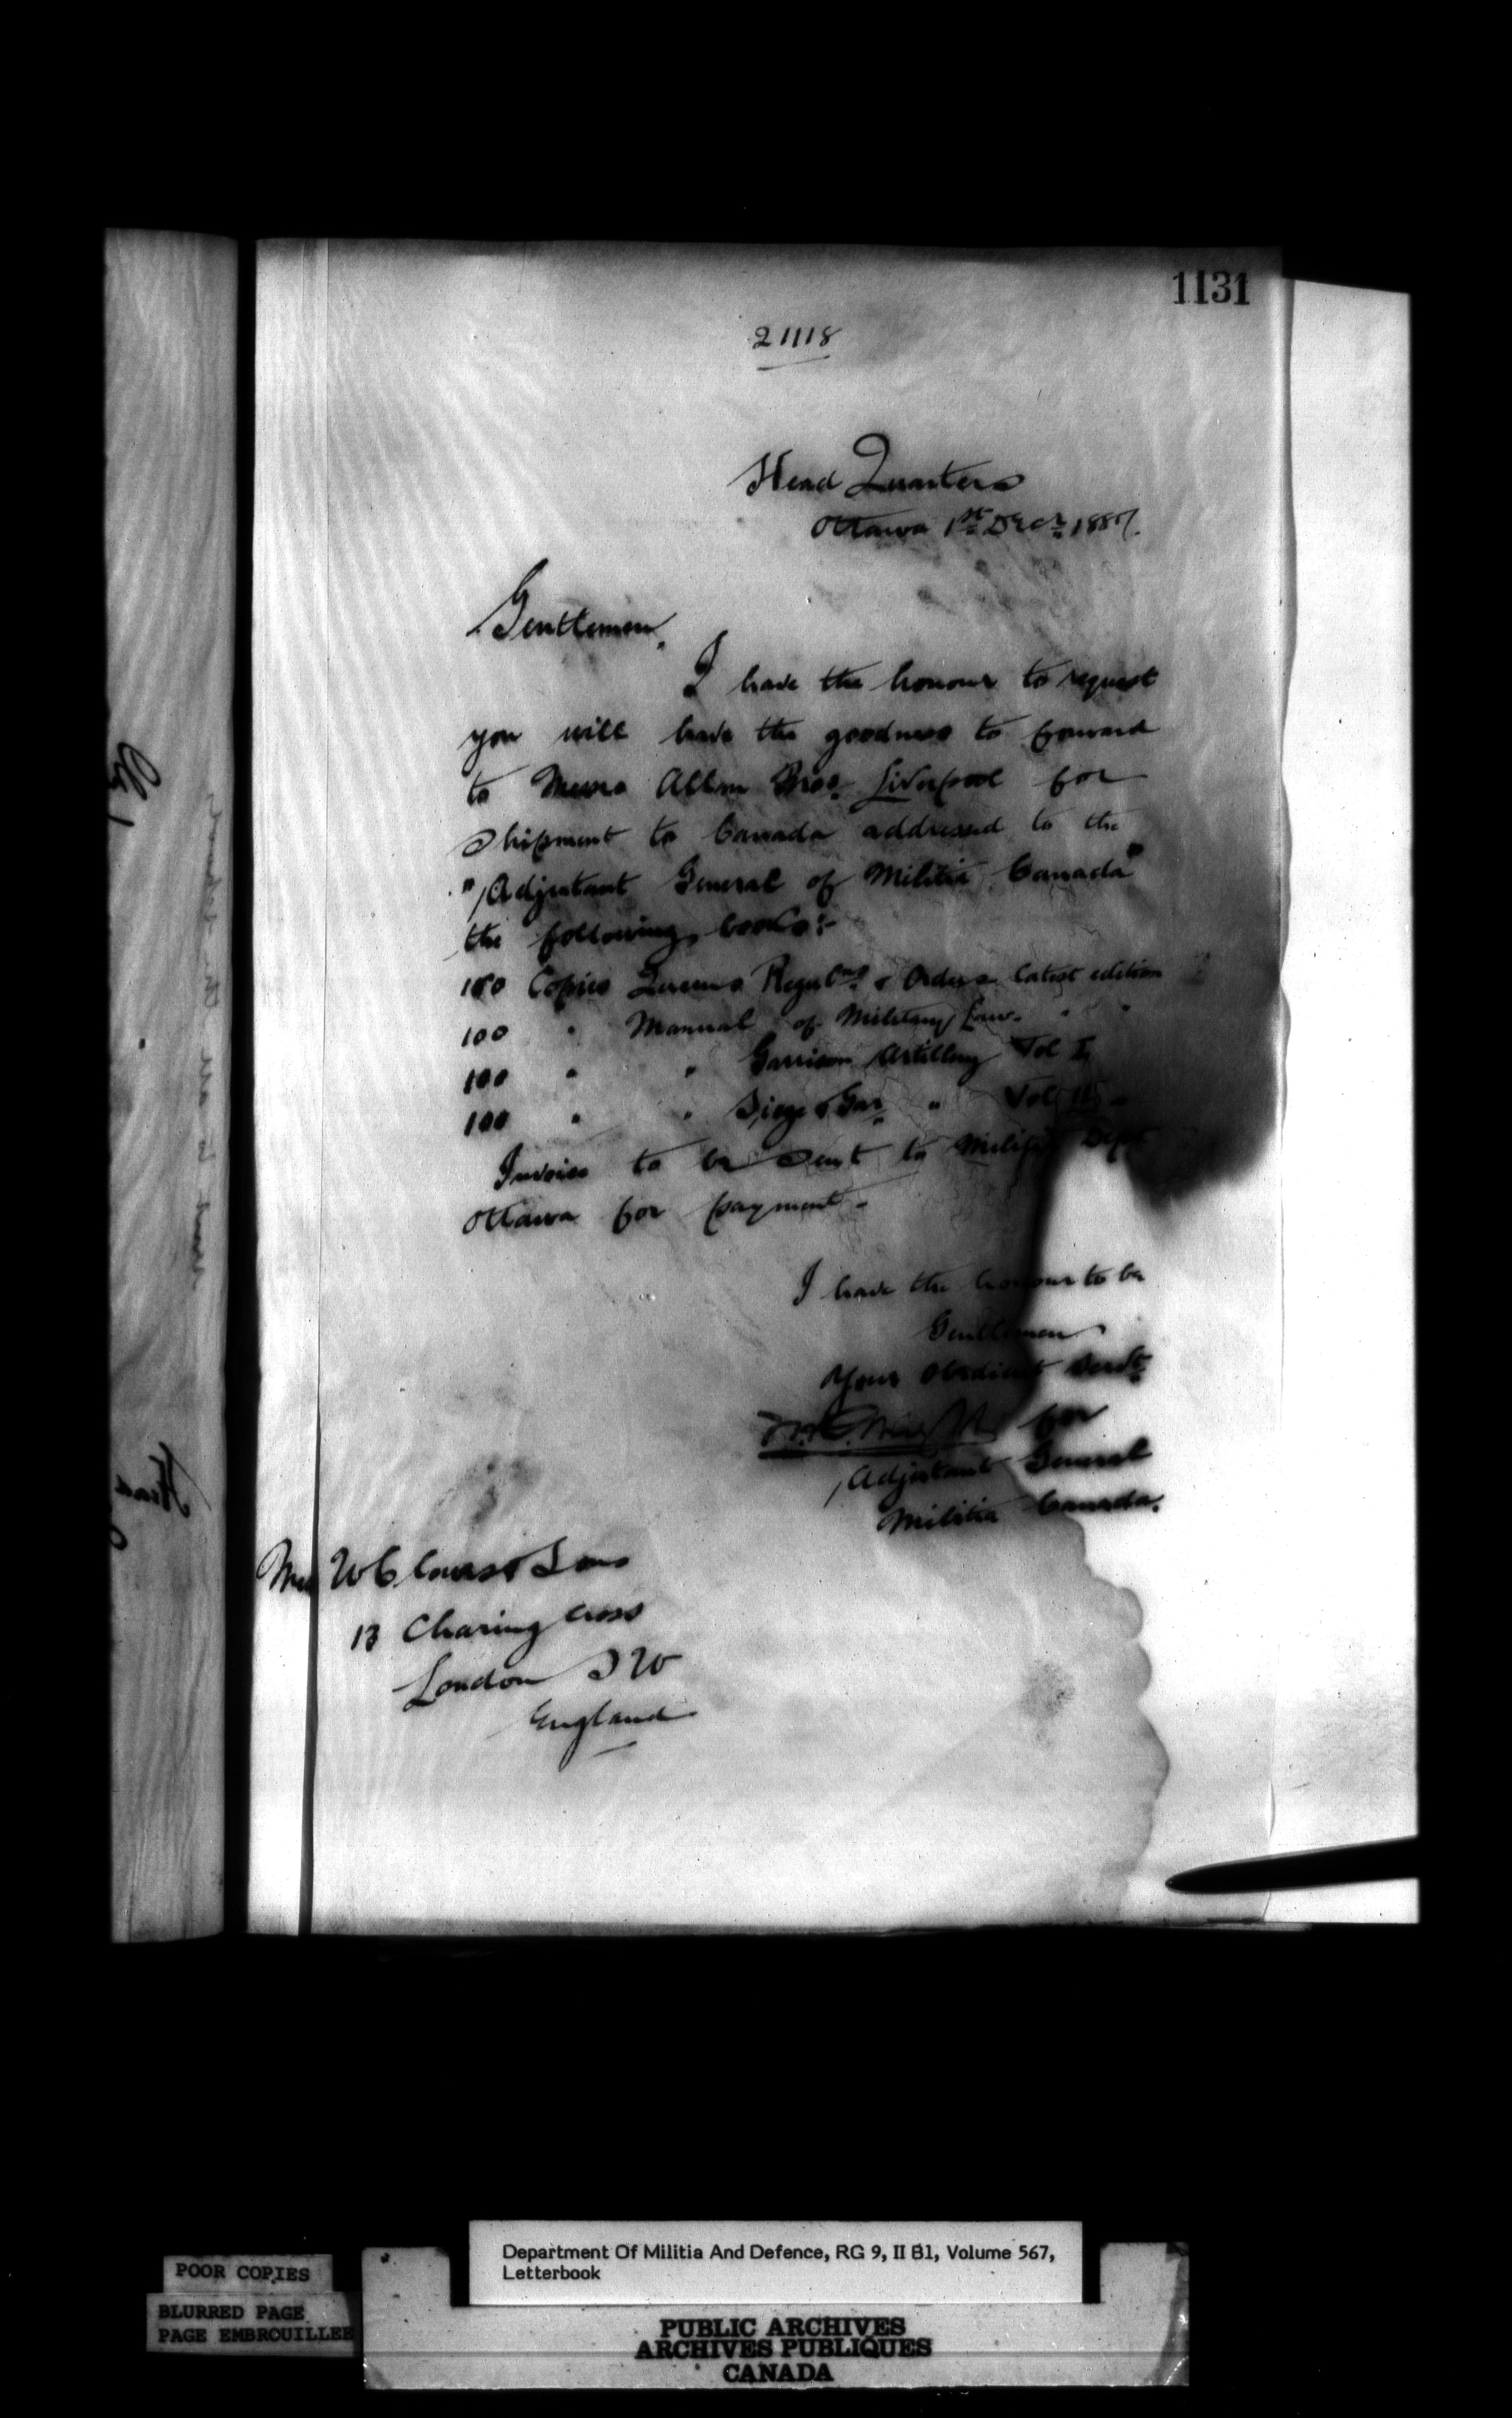 1131
21118
Head Quarters
Ottawa 1st Decr. 1887.
Gentlemen,
I have the honour to request
you will have the goodness to forward
to Messrs Allan Bros. Liverpool for
Shipment to Canada addressed to the
"Adjutant General of Militia Canada"
the following books:-
100 Copies Queens Regulns. & Orders latest edition
100 " Manual of Military Law. " "
100 " " Garrison Artillery Vol I,
100 " " Siege & Gar. " Vol
Invoice to be sent to Militia Dept
Ottawa for payment.-
I have the honour to be
Gentlemen
Your Obedient Servt.
for
Adjutant General
Militia Canada.
W Clowes & Sons
13 Charing Cross
London S W
England
POOR COPIES
BLURRED PAGE
PAGE EMBROUILLEE
Department Of Militia And Defence, RG 9, II B1, Volume 567,
Letterbook
PUBLIC ARCHIVES
ARCHIVES PUBLIQUES
CANADA